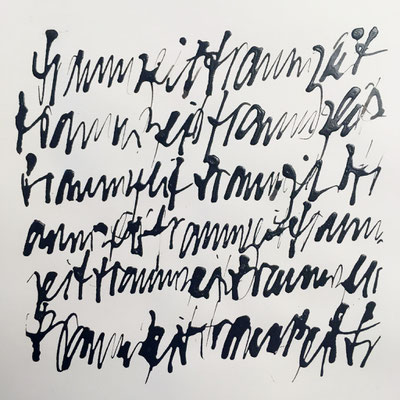 traumzeittraumzeit
traumzeittraumzeit
traumzeittraumzeittr
aumzeittraumzeittraum
zeittraumzeittraumzei
traumzeittraumzeittr